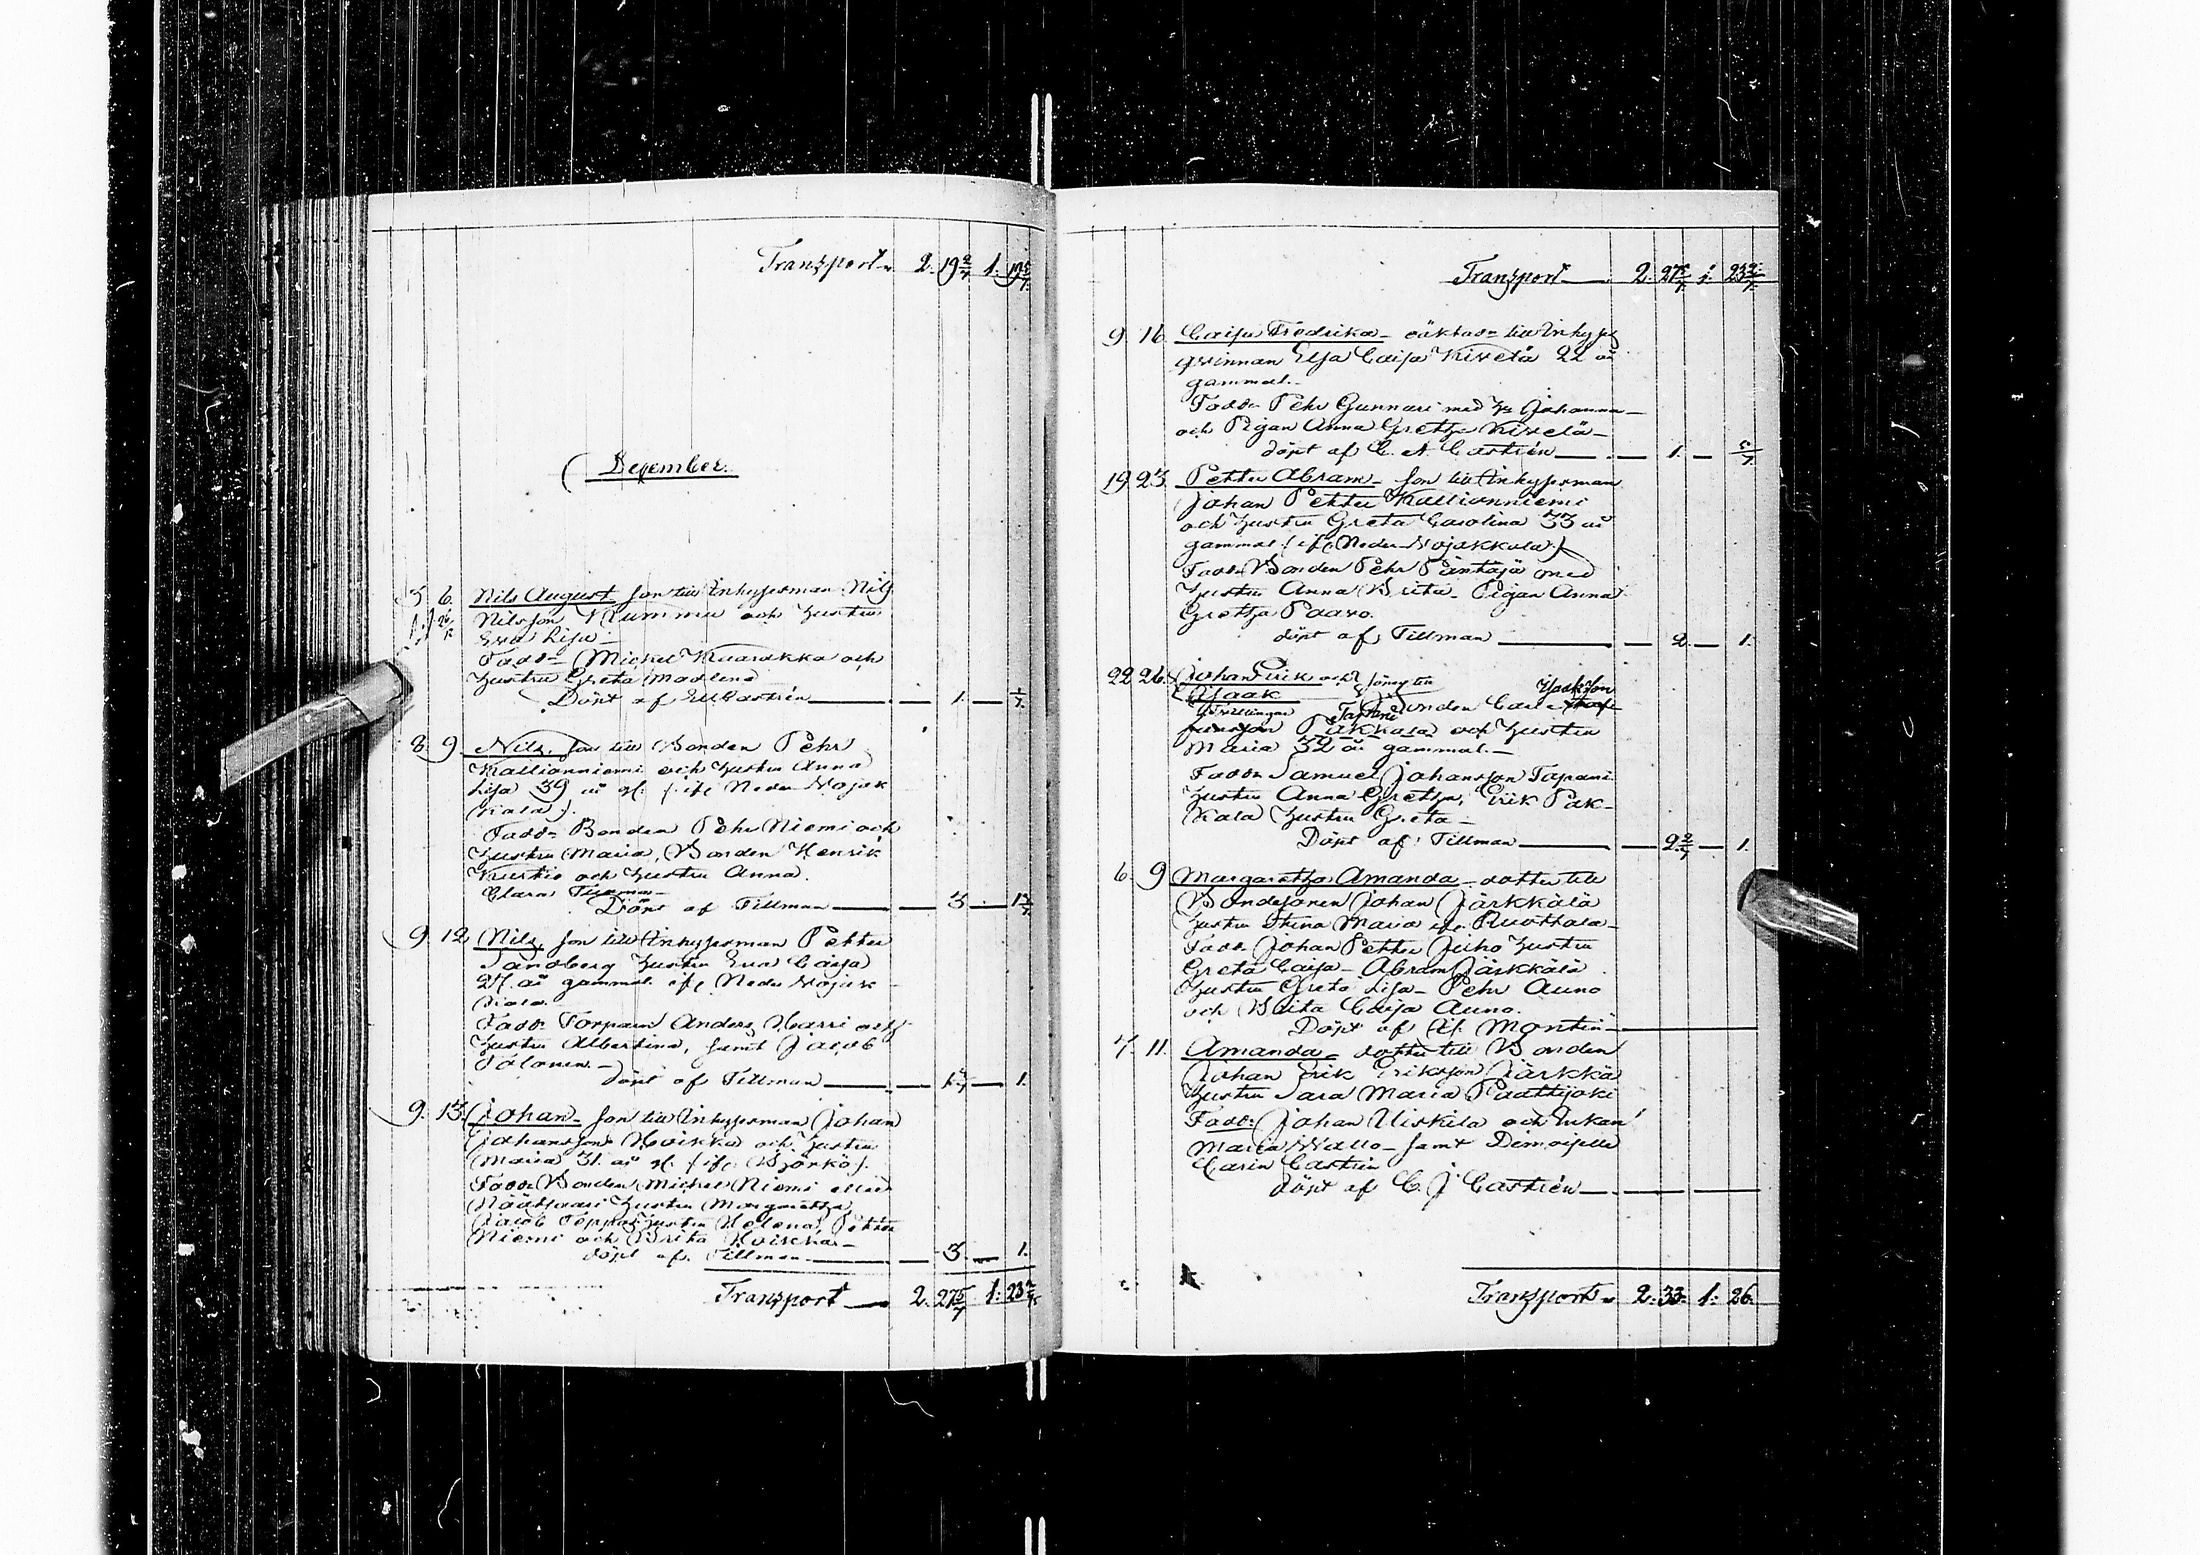 Transport 2. 19 2/7 1. 19 5/7
December.
5. 6. Nils August son till Inhysesman Nils
Nilsson Kummu och hustru
Eva Lisa
Fadd: Michel Kuarakka och
hustru Greta Madlena
Döpt af Castrén 1. 1/7
8. 9. Nils, son till Bonden Pehr
Kallionniemi och hustru Anna
Lisa 39 år gl. if. Neder Wojak
kala
Fadd: Bonden Pehr Niemi och
hustru Maria, Bonden Henrik
Kurtio och hustru Anna.
Clara
Döpt af Tillman 3
9. 12. Nils, son till Inhysesman Petter
Sandberg hustru Eva Caisa
27 år gammal if. Neder Wojak
kala
Fadd: Torparn Anders Harri och
hustru Albertina, samt Jacob
Salonen.
döpt af Tillman 1.
9. 13. Johan son till Inhysesman Johan
Johansson Hoikka och hustru
Maria 31 år gl. if. Björkö
Fadd: Bonden Michel Niemi
hustru Margaretha
Jacob hustru Helena, Petter
Niemi och Brita
döpt af Tillman 3. 1.
Transport 2. 27 5/7 1. 23 2/7
Transport 2. 27 5/7 1. 23 2/7
9. 16. Caisa Fredrika oäkta dr till Inhyses
qvinnan Elsa Caisa Kivelä 22 år
gammal.
Fadd: Pehr Gunnari med h. Johanna
och Pigan Anna Gretha Kivelä
döpt af C. A. Castrén 1.
19. 23. Petter Abram son till Inhysesman
Johan Petter Kallionniemi
och hustru Greta Carolina 33 år
gammal if. Neder Wojakkala
Fadd: Bonden Pehr Päntäjä med
hustru Anna Brita Pigan Anna
Gretha Paavo.
döpt af Tillman 2. 1.
22. 26. Johan Erik och
Isaak söner till
Tvillingar Bonden Isaksson
Tapani Pakkala och hustru
Maria 32 år gammal.
Fadd: Samuel Johansson Tapani
hustru Anna Gretha, Erik Pak-
kala hustru Greta
Döpt af Tillman 2 2/7 1.
6. 9. Margaretha Amanda dotter till
Bondesonen Johan Järkkälä
hustru Stina Maria if. Ruottala
Fadd: Johan Petter Juho hustru
Greta Caisa Abram Järkkälä
hustru Greta Lisa Pehr Auno
och Brita Caisa Auno.
Döpt af Montin
7. 11. Amanda dotter till Bonden
Johan Erik Eriksson Järkkä
hustru Sara Maria Paattijoki
Fadd: Johan Uiskila och Enkan
Maria Wallo samt Demoiselle
Carin Castrén
döpt af C. J. Castrén
Transport 2. 33. 1. 26.